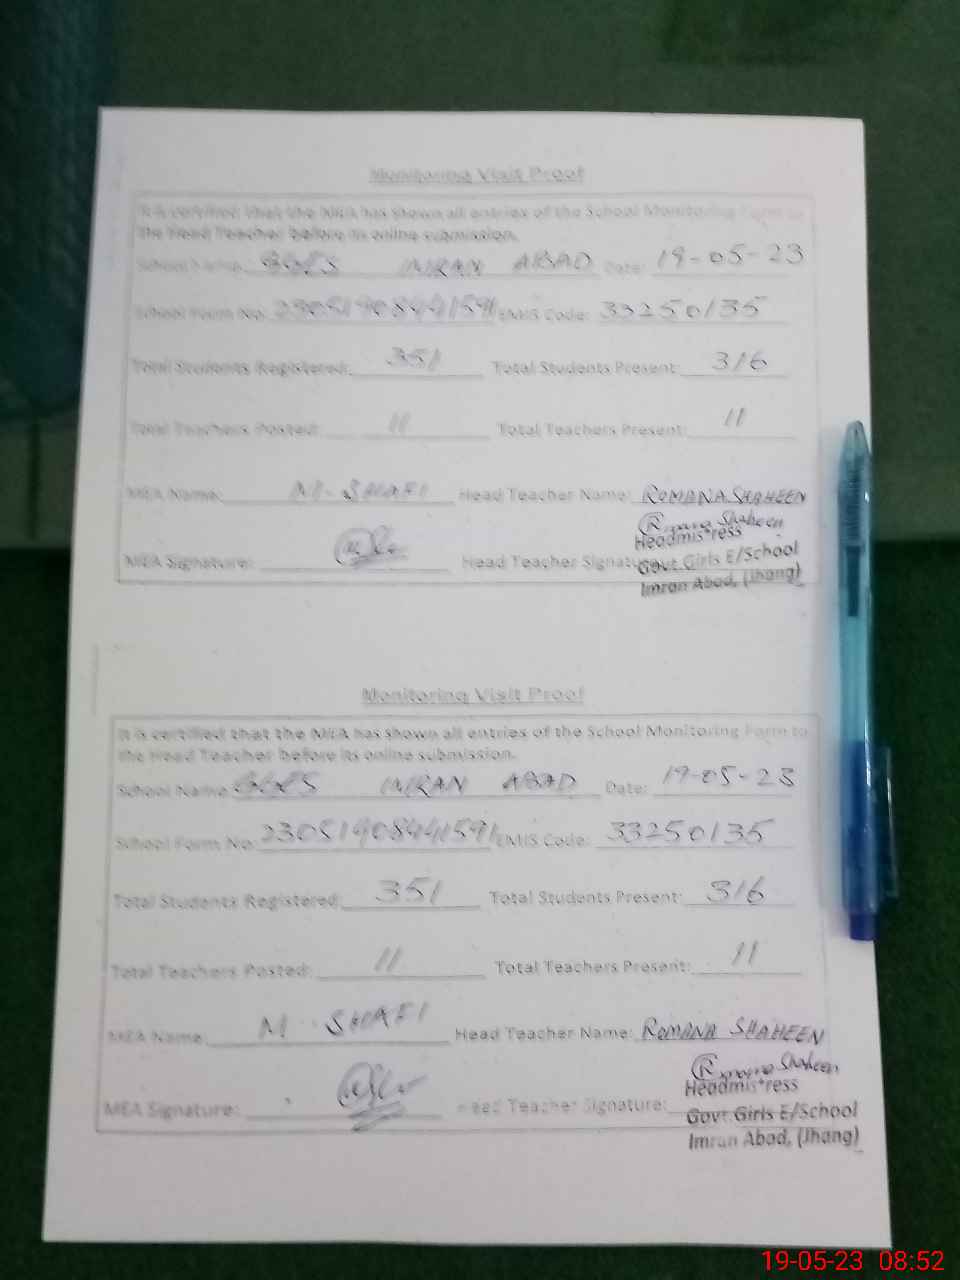 Monitoring Visit Proof
It is certified that the MEA has shown all entries of the School Monitoring Form to
the Head Teacher before its online submission.
School Name: GGES IMRAN ABAD Date: 19-05-23
School Form No: 23051908441591 EMIS Code: 33250135
Total Students Registered: 351 Total Students Present: 316
Total Teachers Posted: 11 Total Teachers Present: 11
MEA Name: M. SHAFI Head Teacher Name: ROMANA SHAHEEN
Romana Shaheen
Headmistress
MEA Signature: Head Teacher Signature: Govt. Girls E/School
Imran Abad, (Jhang)
Monitoring Visit Proof
It is certified that the MEA has shown all entries of the School Monitoring Form to
the Head Teacher before its online submission.
School Name: GGES IMRAN ABAD Date: 19-05-23
School Form No: 23051908441591 EMIS Code: 33250135
Total Students Registered: 351 Total Students Present: 316
Total Teachers Posted: 11 Total Teachers Present: 11
MEA Name: M. SHAFI Head Teacher Name: ROMANA SHAHEEN
Romana Shaheen
Headmistress
MEA Signature: Head Teacher Signature:
Govt. Girls E/School
Imran Abad, (Jhang)
19-05-23 08:52